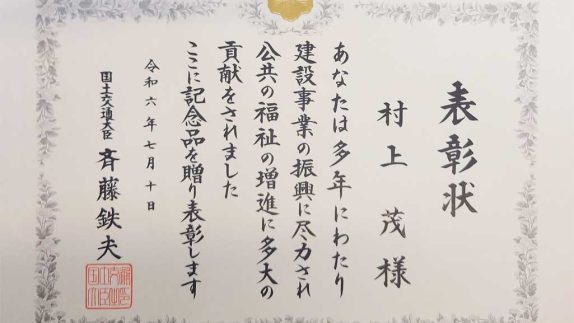 表彰状
村上茂様
あなたは多年にわたり
建設事業の振興に尽力され
公共の福祉の増進に多大の
貢献をされました
ここに記念品を贈り表彰します
令和六年七月十日
国土交通大臣 斉藤鉄夫